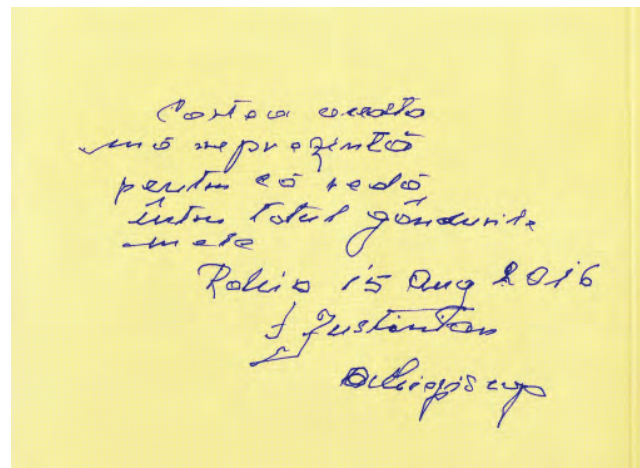 Cartea aceasta
mă reprezintă
pentru că redă
întru totul gândurile
mele
Rohia 15 Aug 2016
† Justinian
Arhiepiscop